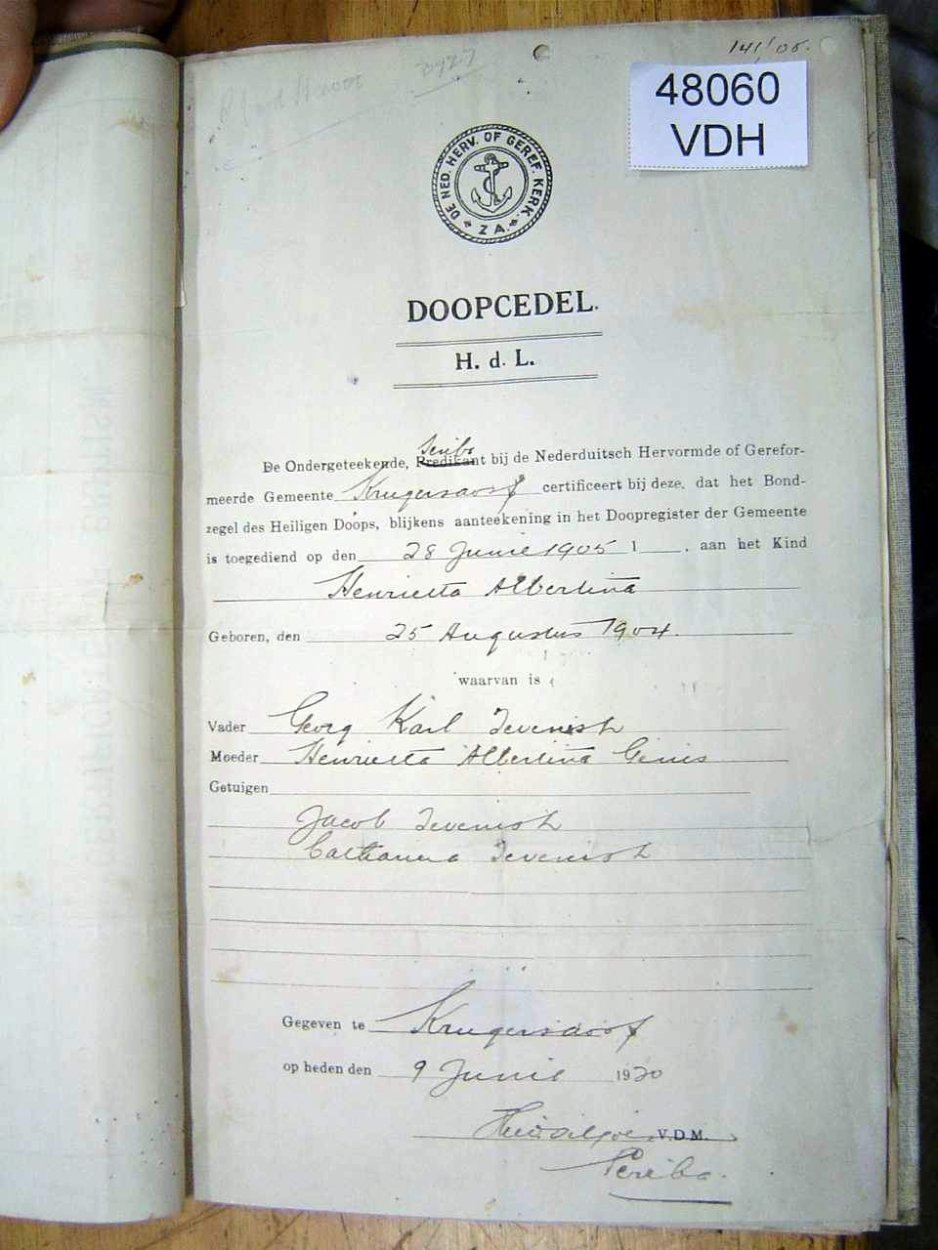 141/05.
48060
VDH
DE NED. HERV. OF GEREF. KERK.
Z A.
DOOPCEDEL.
H. d. L.
Scriba
De Ondergeteekende, Predikant bij de Nederduitsch Hervormde of Gerefor-
meerde Gemeente Krugersdorp certificeert bij deze, dat het Bond-
zegel des Heiligen Doops, blijkens aanteekening in het Doopregister der Gemeente
is toegediend op den 28 Junie 1905 1 , aan het Kind
Henrietta Albertina
Geboren, den 25 Augustus 1904.
waarvan is
Vader Georg Karl Devenish
Moeder Henrietta Albertina Genis
Getuigen
Jacob Devenish
Catharina Devenish
Gegeven te Krugersdorp
op heden den 9 Junie 1930
V.D.M.
Scriba.